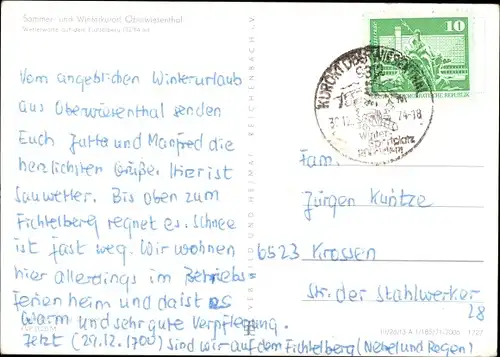 Sommer- und Winterkurort Oberwiesenthal
Wetterwarte auf dem Fichtelberg (1214 m)
Vom angeblichen Winterurlaub
aus Oberwiesenthal senden
Euch Jutta und Manfred die
herzlichsten Grüße. Hier ist
Sauwetter. Bis oben zum
Fichtelberg regnet es. Schnee
ist fast weg. Wir wohnen
hier allerdings im Betriebs=
ferienheim und da ist es
warm und sehr gute Verpflegung.
Jetzt (29.12. 1700) sind wir auf dem Fichtelberg (Nebel und Regen)
BILD UND HEIMAT REICHENBACH I. V.
10
DEMOKRATISCHE REPUBLIK
KURORT OBERWIESENTHAL
74-18
Winter-
sportplatz
Fam.
Jürgen Kuntze
6523 Krossen
Str. der Stahlwerker
28